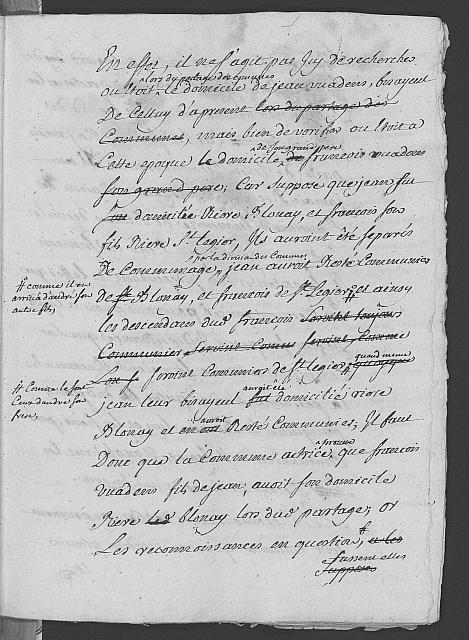 En effet, il ne s'agit pas Icy de recherches
lors du partage des communes
ou etoit le domicile de jean vuadens, bisayeul
De Celluy d'apresent lors du partage des
Communes, mais bien de verifier ou etoit a
de son grand pere
Cette epoque le domicile de françois vuadens
son grand pere; Car supposé que jean fut
domicilié Riere Blonay, et françois son
fils Riere St. Legier, Ils auroient été separés
par la division des Communes
De Communage, jean auroit Resté Communier
# comme il en
arrivà d'andré son
autre fils,
de Blonay, et francois de St. Legier # et ainsy
les descendans dud. françois seroint toujours
Communier seroint comme
seroint Comunier de St. legier, quand meme
# Comme le sont
Ceux d'andré son
frere,
auroit été
jean leur bisayeul fut domicilié riere
auroit
Blonay et en Resté Communier; Il faut
prouve
Donc que la Commune actrice, que francois
vuadens fils de jean, avoit son domicile
Riere Blonay lors dud. partage; or
Les reconnoissances en question,
fussent elles
supposés